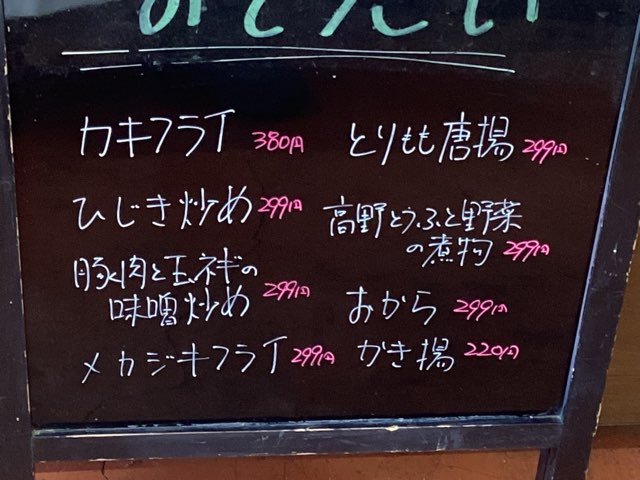 カキフライ 380円
ひじき炒め 299円
豚肉と玉ネギの
味噌炒め 299円
メカジキフライ 299円
とりもも唐揚 299円
高野とうふと野菜
の煮物 299円
おから 299円
かき揚 220円